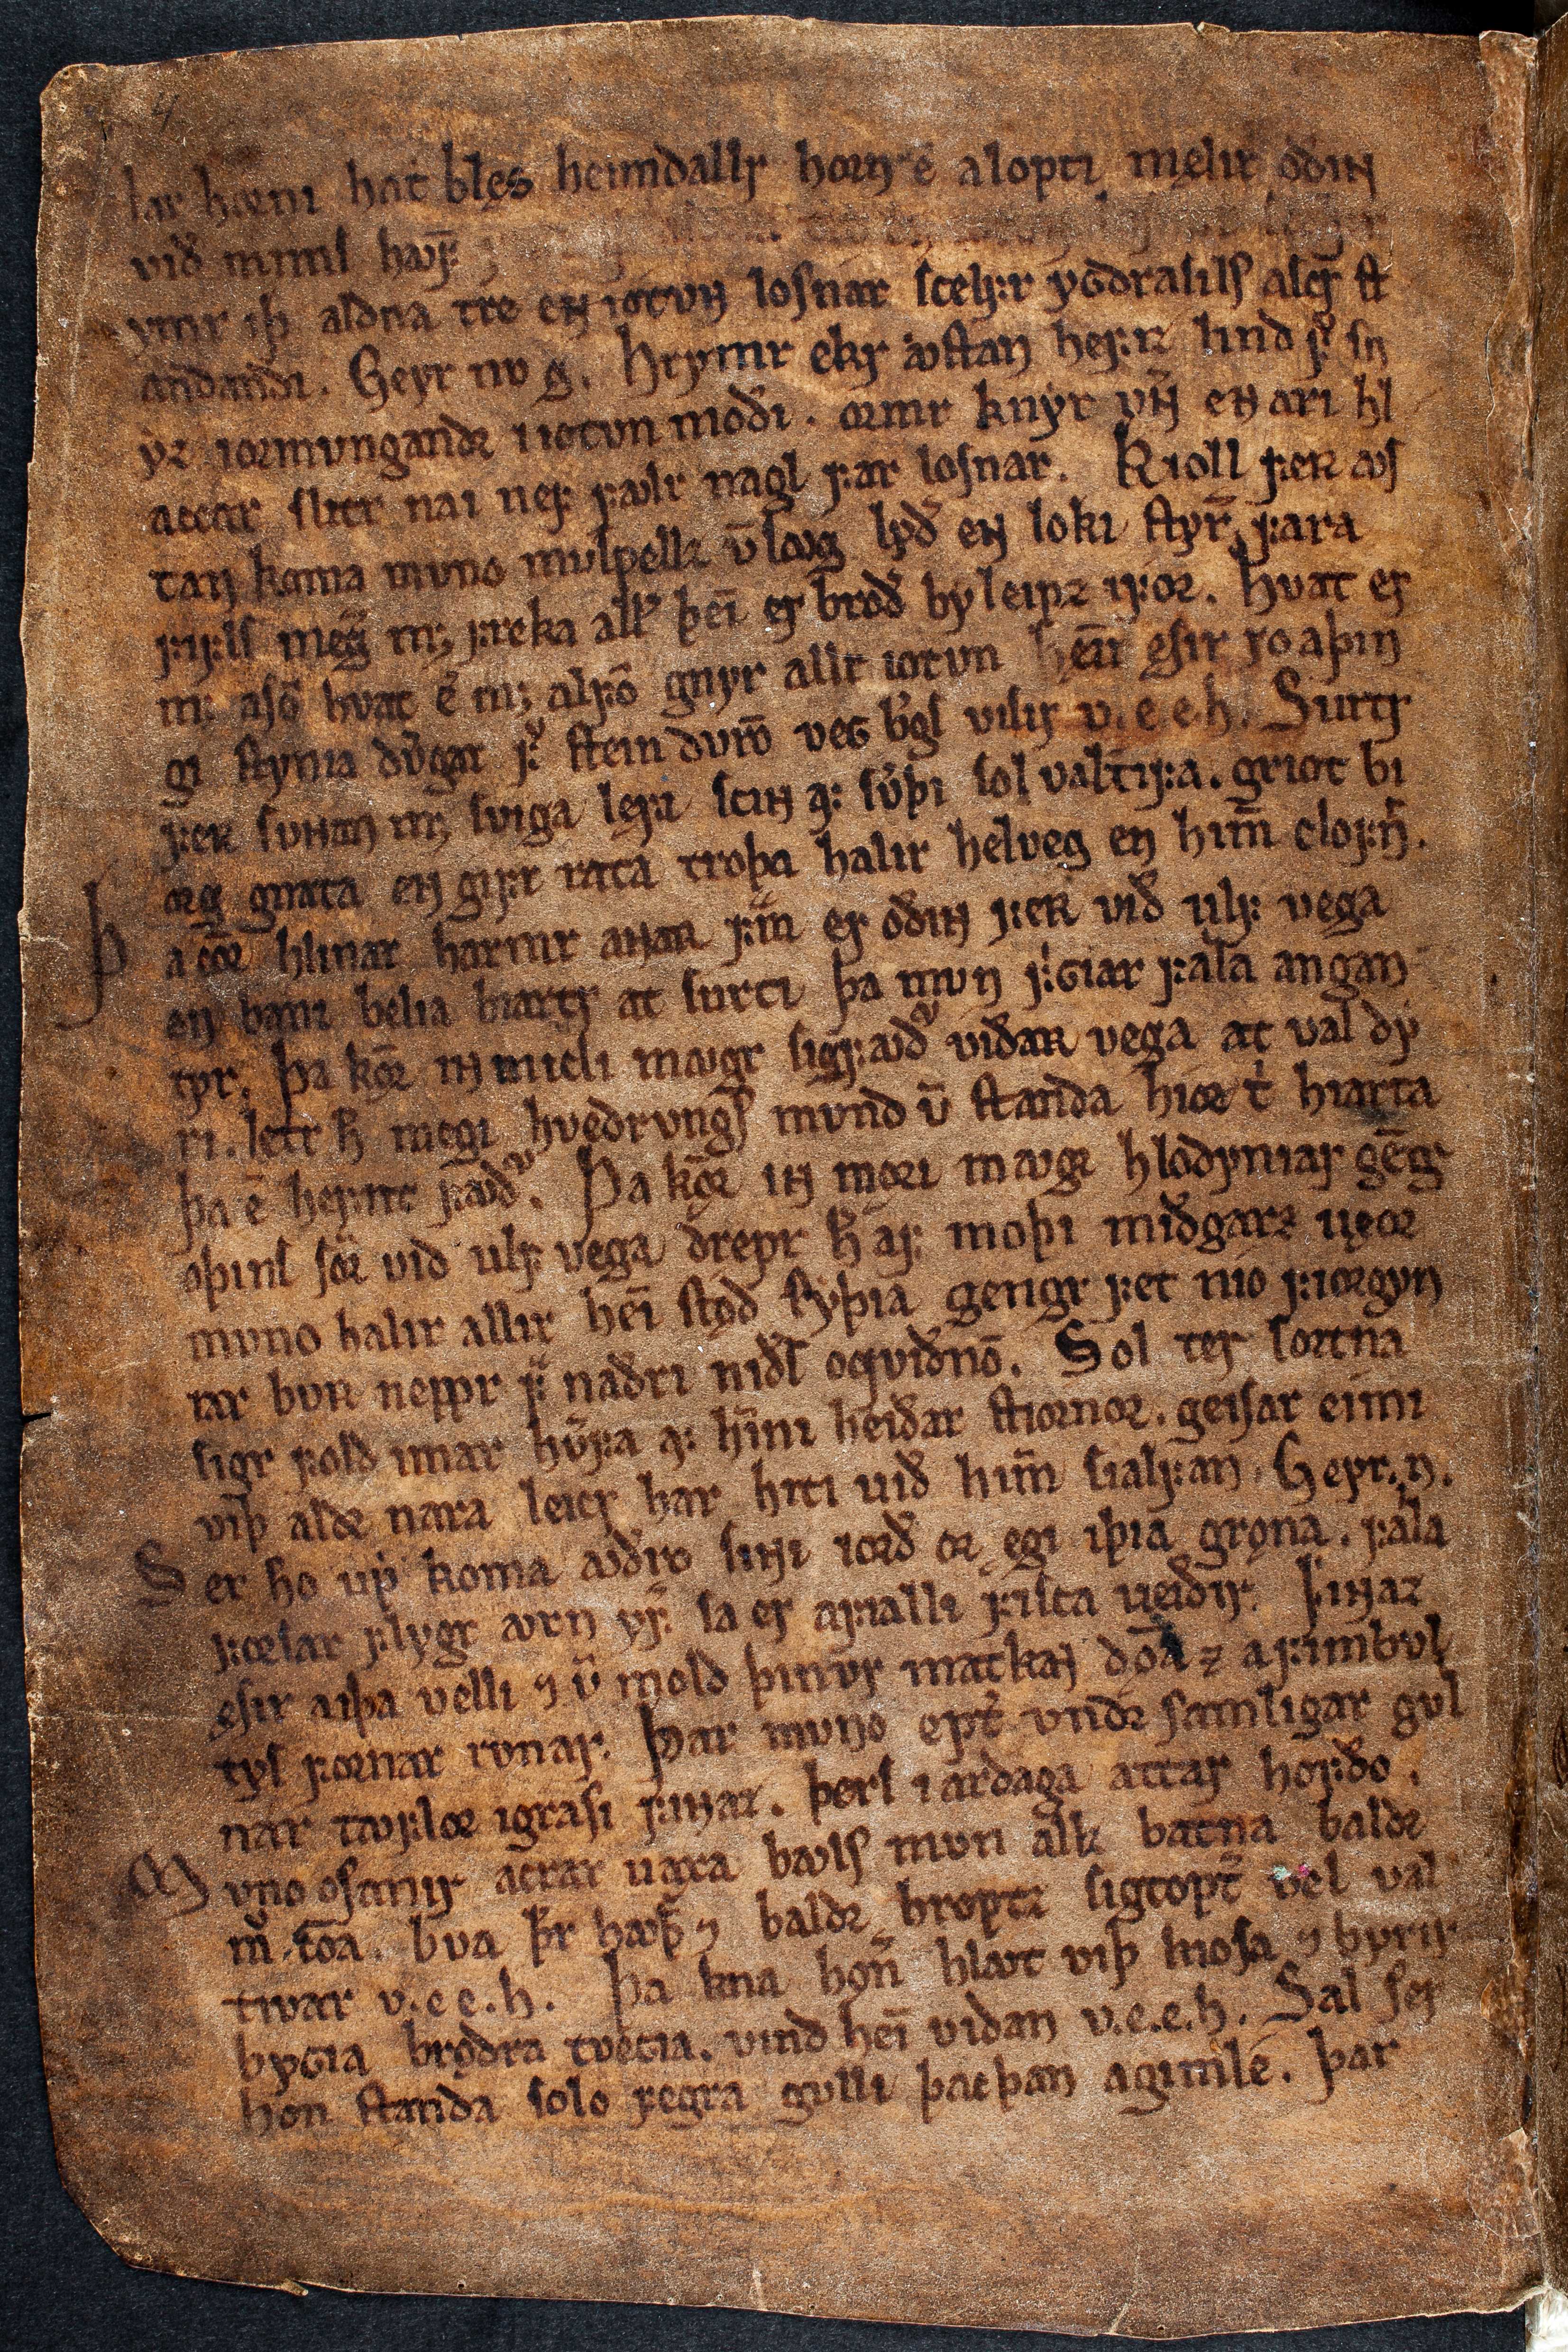 4
lar horni hat bles heimdallr horn ē a lopti męlir odin
við mimſ hꜹfꝰ
ymr iþ aldna tre en iotvn loſnar ſcelfr ygdraſilſ aſcr ſt
andandi. Geyr nv g. Hrymr ekr ꜹſtan hefiz lind f̄ ſn
ẏz iormvngandr i iotvn moði. ormr knẏr vn̄ en ari hl
accar ſlitr nai nef fꜹlr nagl far loſnar. Kioll feR ꜹſ
tan koma mvno mvſpellz v̄ lꜹg lyð en loki ſtyr̄ fara
fifls megir mꝫ freka allꝰ þeī er broð byleipz ifor. Hvat er
mꝫ aſō hvat ē mꝫ alfō gnyr allr iotvn heīr eſir ro a þin
gi ſtynia dv̄gar f̄ ſtein durō veg b̓gſ viſir v.e.e.h. Surtr
feR ſvnan mꝫ ſviga lęfi ſcin af ſv̓þi ſol valtifa. griot bi
org gnata en gifr rata troþa halir helveg en him̄ clofn̄.
Þ a cōr hlinar harmr annaR fm̄ er oðin feR við ulf vega
en bani belia biartr at ſurti þa mvn friGiar falla angan
tyr. Þa kōr in micli mꜹgr ſigfꜹðꝰ viðaR vega at val dẏ
ri. letr h̄ megi hveðrvngſ mvnd v̄ ſtanda hior t̓ hiarta
þa ē hefnt fꜹðꝰ. Þa kōr in męri mꜹgr hloðyniar gēgr
oþinſ ſōr við ulf vega drepr h̄ af moþi miðgarz ueor
mvno halir allir heī ſtǫð ryþia gengr fet nio fiorgyn
iar bvR neppr f̄ naðri niðſ oqviðnō. Sol ter ſortna
ſigr fold imar hv̄fa af hīni heiðar ſtiornor. geiſar eimi
viþ aldr nara leicr har hiti við him̄ ſialfan. Geyr. n.
S er ho up koma ꜹðro ſiɴi iorð or ęgi iþia grǫna. falla
forſar flygr ꜹrn yf̄ ſa er a fialli fiſca veiðir. Finaz
eſir a iþa velli ⁊ v̄ mold þinvr matkan dǭa ⁊ a fimbvl
tyſ fornar rvnar. Þar mvno ept̄ vndr ſamligar gvl
nar tꜹflor i graſi finaz. þerſ i ardaga attar hofðo.
M vno oſanir acrar uaxa bꜹlſ mvn allz batna baldr
mꝰ. cōa. bva þr hꜹþ ⁊ baldr hroptz ſigtopt̄ vel val
tivar v.e e.h. Þa kna hǫn̄ hlꜹt viþ kioſa ⁊ byrir
bygia brǫðra tvegia. vind heī viðan v.e.e.h. Sal ſer
hon ſtanda ſolo fegra gvlli þacþan a gimle. Þar